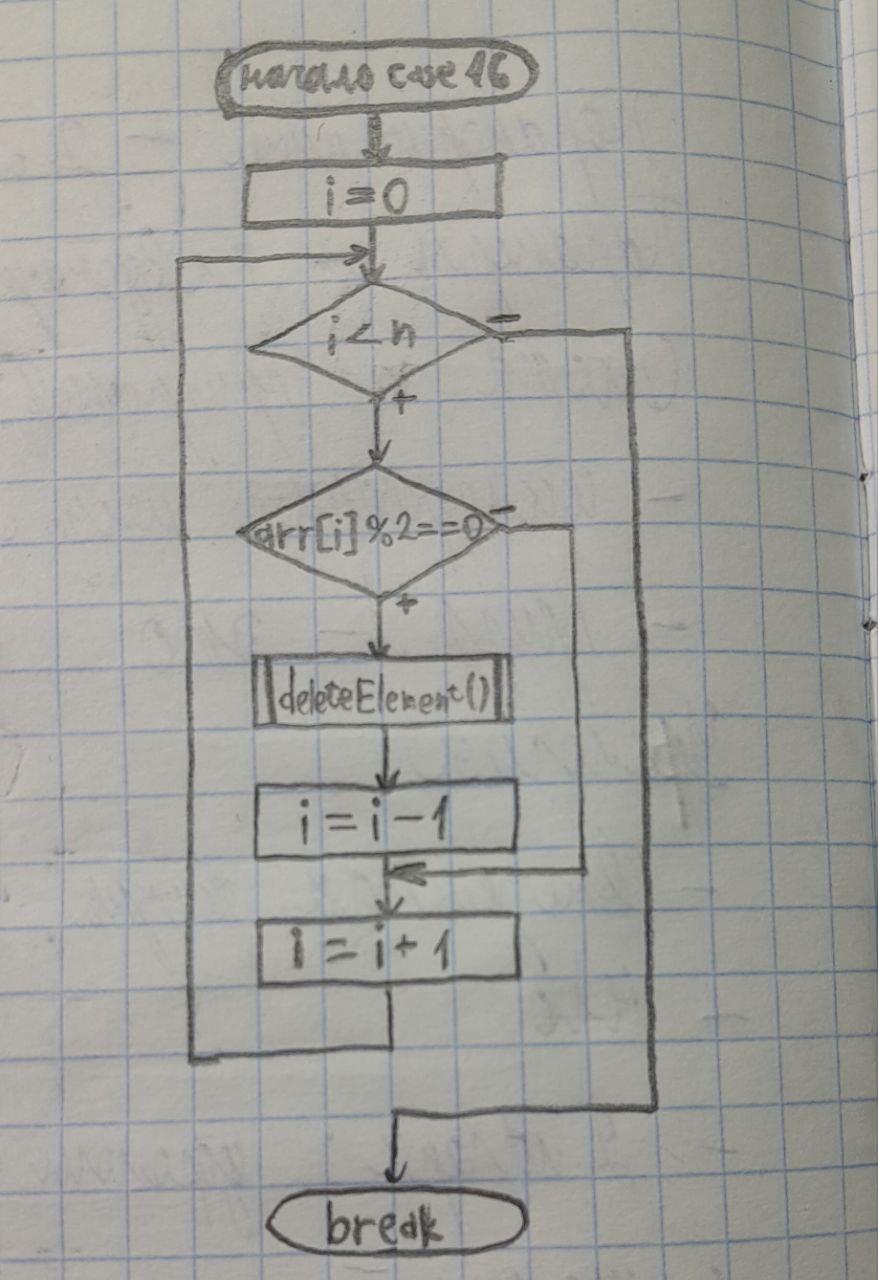 начало case 16
i = 0
i < n
-
+
arr[i] %2==0
-
+
deleteElement()
i = i - 1
i = i + 1
break